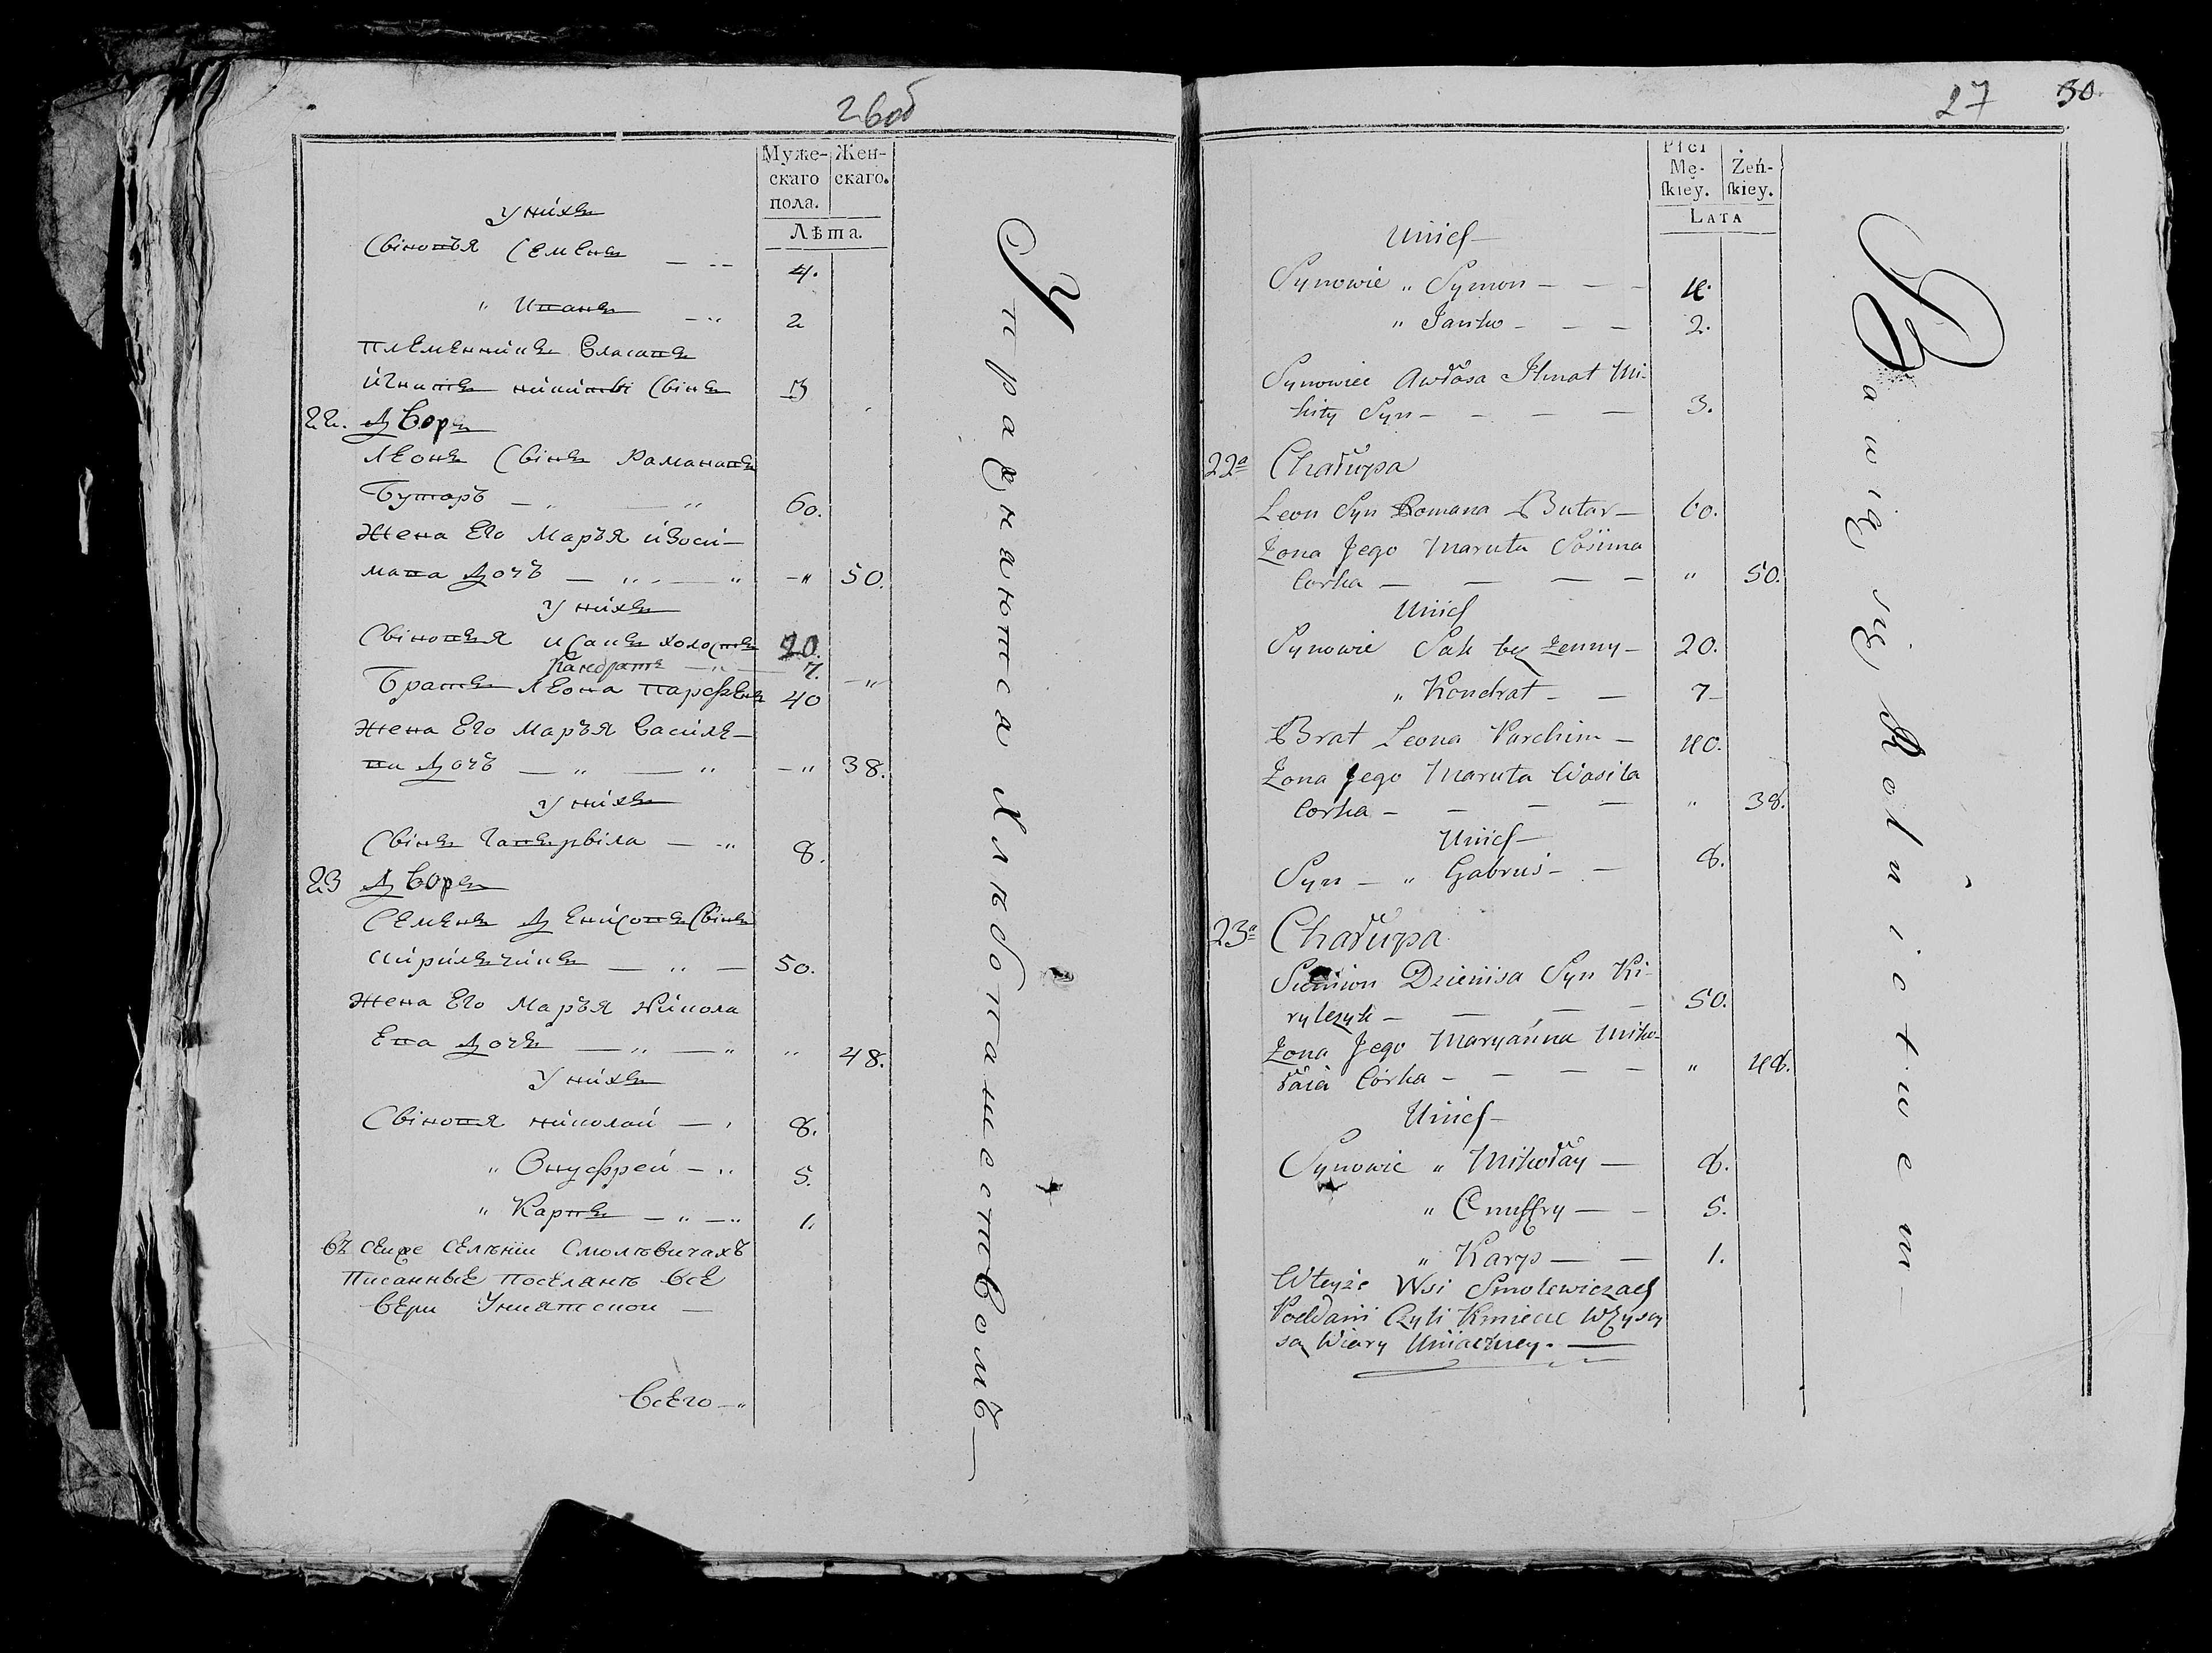 26 об
Муже-
скаго
пола.
Жен-
скаго.
Лѣта.
У нихъ
Свіновья Семенъ — 4.
" Иванъ — 2
Племенникъ Власавъ
Игнатъ никитві Свінъ 3
22. Дворъ
Леонъ Свінъ Раманавъ
Бутаръ — " — " 60.
Жена Его Маръя изоси-
мава Дочъ — " — " — " 50.
У нихъ
Свіновья Исакъ холостъ 20.
Кандратъ — " — 7.
Братъ Леона Парфенъ 40 — "
Жена Его Маръя Василе-
ва Дочъ — " — " — " 38.
У нихъ
Свінъ Гавървіла — " 8.
23 Дворъ
Семенъ Денисовъ Свінъ
Кириленчикъ — " — 50.
Жена Его Маръя Никола
Ева Дочъ — " — " " 48.
У нихъ
Свіновя николай — " 8.
" Онуфрей — " 5.
" Карпъ — " — " 1.
въ сеире селѣнии Смолѣвичахъ
Писаннвіе поселянѣ Всѣ
вѣри Униятскои —
Всего — "
Упражнаются Хлѣбопашествомъ —
27 30.
Płci
Mę-
ſkiey.
Żeń-
ſkiey.
LATA
Unich —
Synowie " Symon — — — 4.
" Janko — — — 2.
Synowiec Awłasa Ihnat Mi-
kity Syn — — — — 3.
22ª Chałupa
Leon Syn Romana Butar — 60.
Żona Jego Maruta Sosima
Corka — — — — " 50.
Unich
Synowie Sak bez żenny — 20.
" Kondrat — — 7 —
Brat Leona Parchim — 40.
Żona Jego Maruta Wasila
Corka — — — — " 38.
Unich —
Syn — " Gabruś — — 8.
23ª Chałupa
Siemion Dzienisa Syn Ki-
rylczyk — — — — 50.
Żona Jego Maryanna Miko-
łaia Córka — — — — " 48.
Unich —
Synowie " Mikołay — 8.
" Onuffry — — 5.
" Karp — — 1.
Wteyże Wsi Smolewiczach
Poddani Czyli Kmiecie Wszyscy
są Wiary Uniackiey. —
Bawią się Rolnictwem —